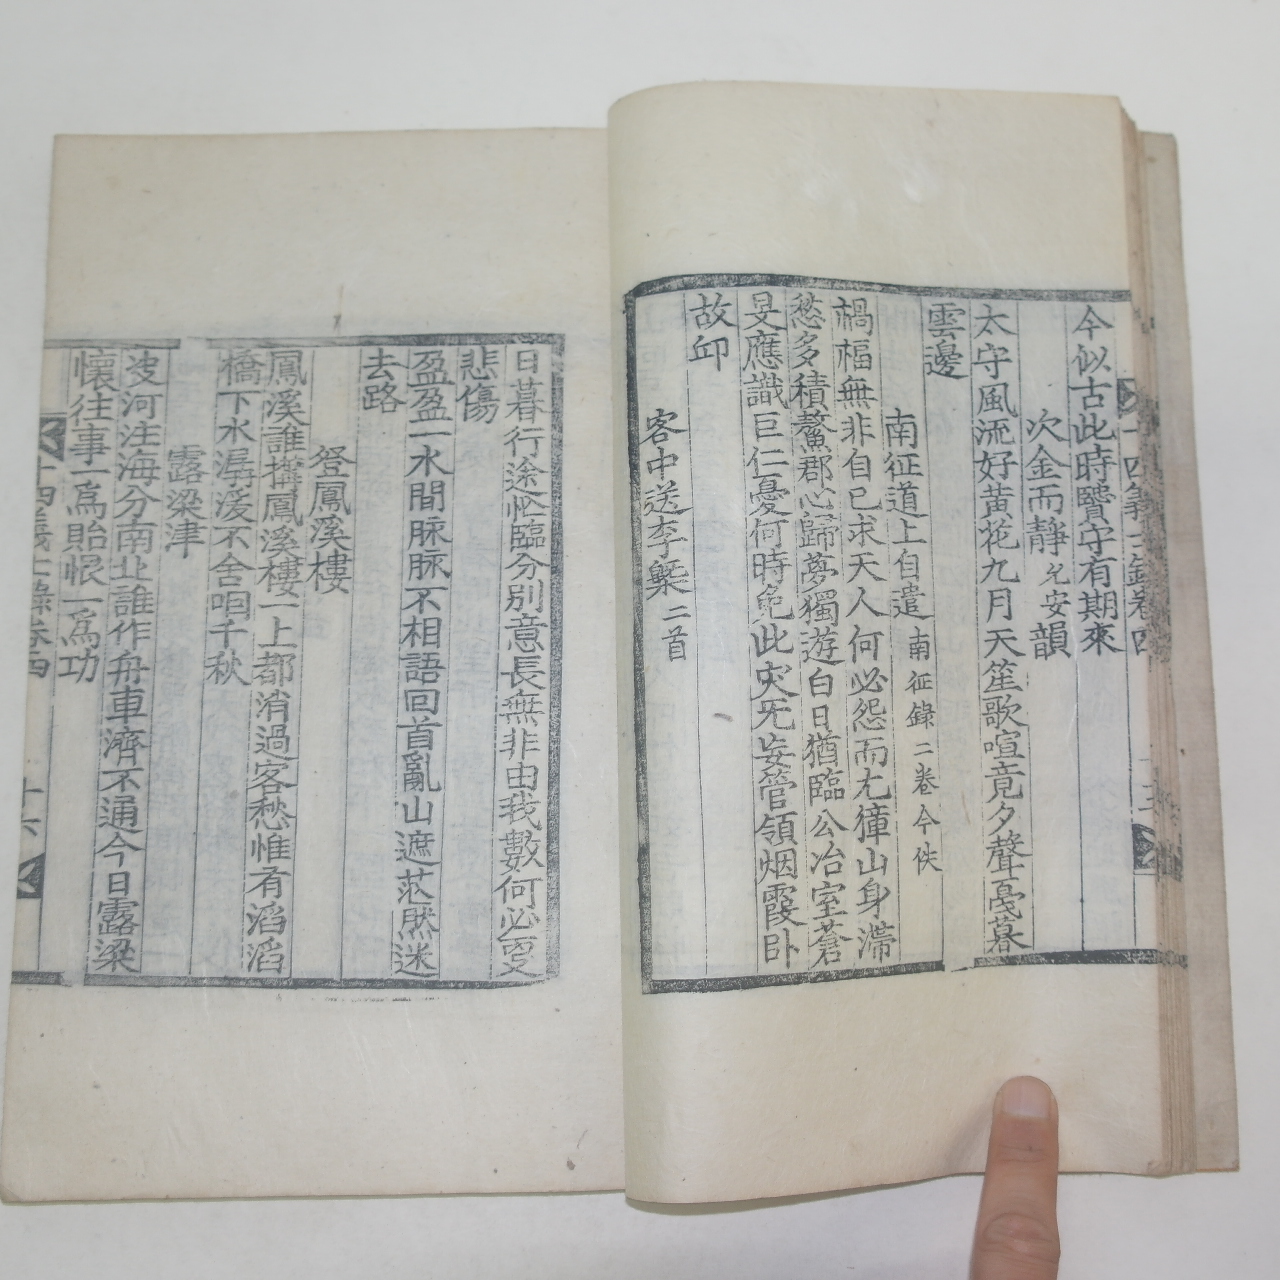 十四義士錄卷四
今似古此時賢守有期來
次金而靜允安韻
太守風流好黃花九月天笙歌喧竟夕聲戞暮
雲邊
南征道上自遣南征錄二卷今佚
禍福無非自己求天人何必怨而尤獐山身滯
愁多積鰲郡心歸夢獨遊白日猶臨公冶室蒼
旻應識巨仁憂何時免此灾旡妄管領烟霞卧
故邱
客中送李槃二首
日暮行途忙臨分別意長無非由我數何必更
悲傷
盈盈一水間脉脉不相語回首亂山遮茫然迷
去路
登鳳溪樓
鳳溪誰撰鳳溪樓一上都消過客愁惟有滔滔
橋下水潺湲不舍咽千秋
露梁津
波河注海分南北誰作舟車濟不通今日露梁
懷往事一爲貽恨一爲功
十四義士錄卷四 十六